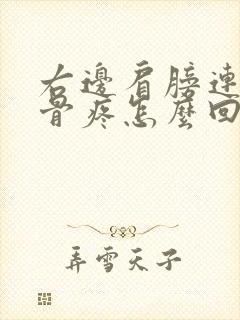 右邊肩膀連
骨疼怎麼回
弄雪天子